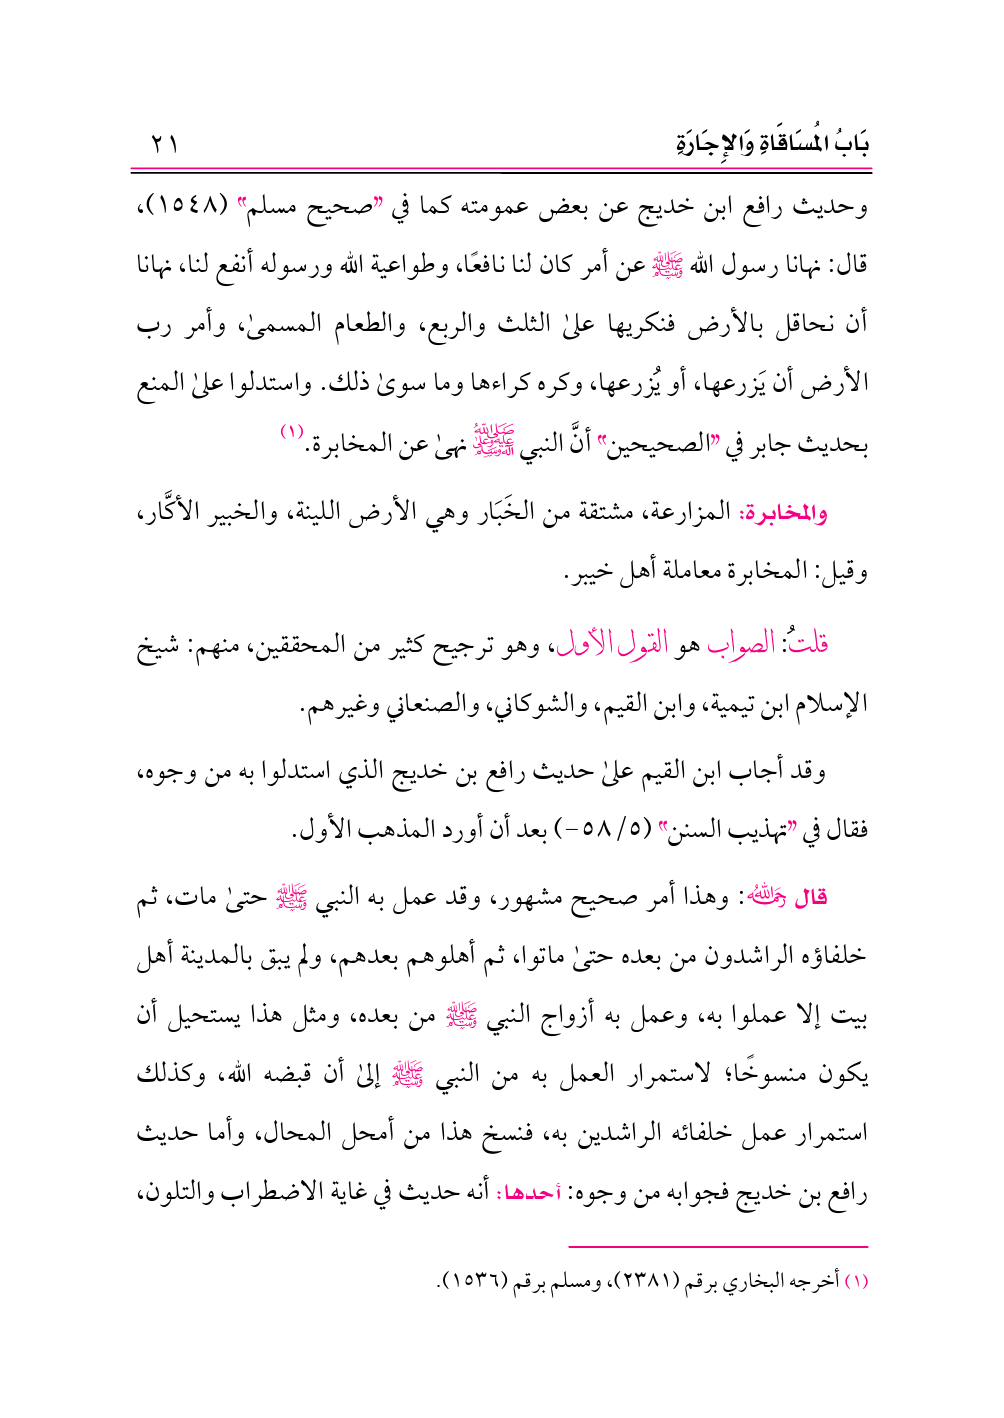 بَابُ المُسَاقَاةِ وَالإِجَارَةِ ٢١
وحديث رافع ابن خديج عن بعض عمومته كما في "صحيح مسلم" (١٥٤٨)،
قال: نهانا رسول الله ﷺ عن أمر كان لنا نافعًا، وطواعية الله ورسوله أنفع لنا، نهانا
أن نحاقل بالأرض فنكريها علىٰ الثلث والربع، والطعام المسمىٰ، وأمر رب
الأرض أن يَزرعها، أو يُزرعها، وكره كراءها وما سوىٰ ذلك. واستدلوا علىٰ المنع
بحديث جابر في "الصحيحين" أنَّ النبي ﷺ نهىٰ عن المخابرة.(١)
والمخابرة: المزارعة، مشتقة من الخَبَار وهي الأرض اللينة، والخبير الأكَّار،
وقيل: المخابرة معاملة أهل خيبر.
قلتُ: الصواب هو القول الأول، وهو ترجيح كثير من المحققين، منهم: شيخ
الإسلام ابن تيمية، وابن القيم، والشوكاني، والصنعاني وغيرهم.
وقد أجاب ابن القيم علىٰ حديث رافع بن خديج الذي استدلوا به من وجوه،
فقال في "تهذيب السنن" (٥/ ٥٨-) بعد أن أورد المذهب الأول.
قال رحمه الله: وهذا أمر صحيح مشهور، وقد عمل به النبي ﷺ حتىٰ مات، ثم
خلفاؤه الراشدون من بعده حتىٰ ماتوا، ثم أهلوهم بعدهم، ولم يبق بالمدينة أهل
بيت إلا عملوا به، وعمل به أزواج النبي ﷺ من بعده، ومثل هذا يستحيل أن
يكون منسوخًا؛ لاستمرار العمل به من النبي ﷺ إلىٰ أن قبضه الله، وكذلك
استمرار عمل خلفائه الراشدين به، فنسخ هذا من أمحل المحال، وأما حديث
رافع بن خديج فجوابه من وجوه: أحدها: أنه حديث في غاية الاضطراب والتلون،
(١) أخرجه البخاري برقم (٢٣٨١)، ومسلم برقم (١٥٣٦).